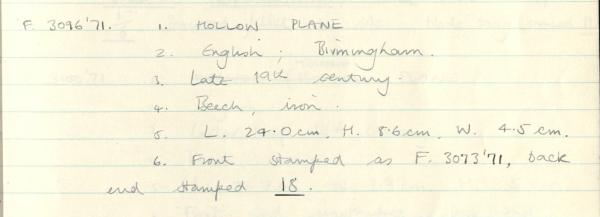 F. 3096'71. 1. HOLLOW PLANE
2. English; Birmingham.
3. Late 19th century.
4. Beech, iron.
5. L. 24.0cm. H. 8.6cm. W. 4.5 cm.
6. Front stamped as F. 3073'71, back
end stamped 18.